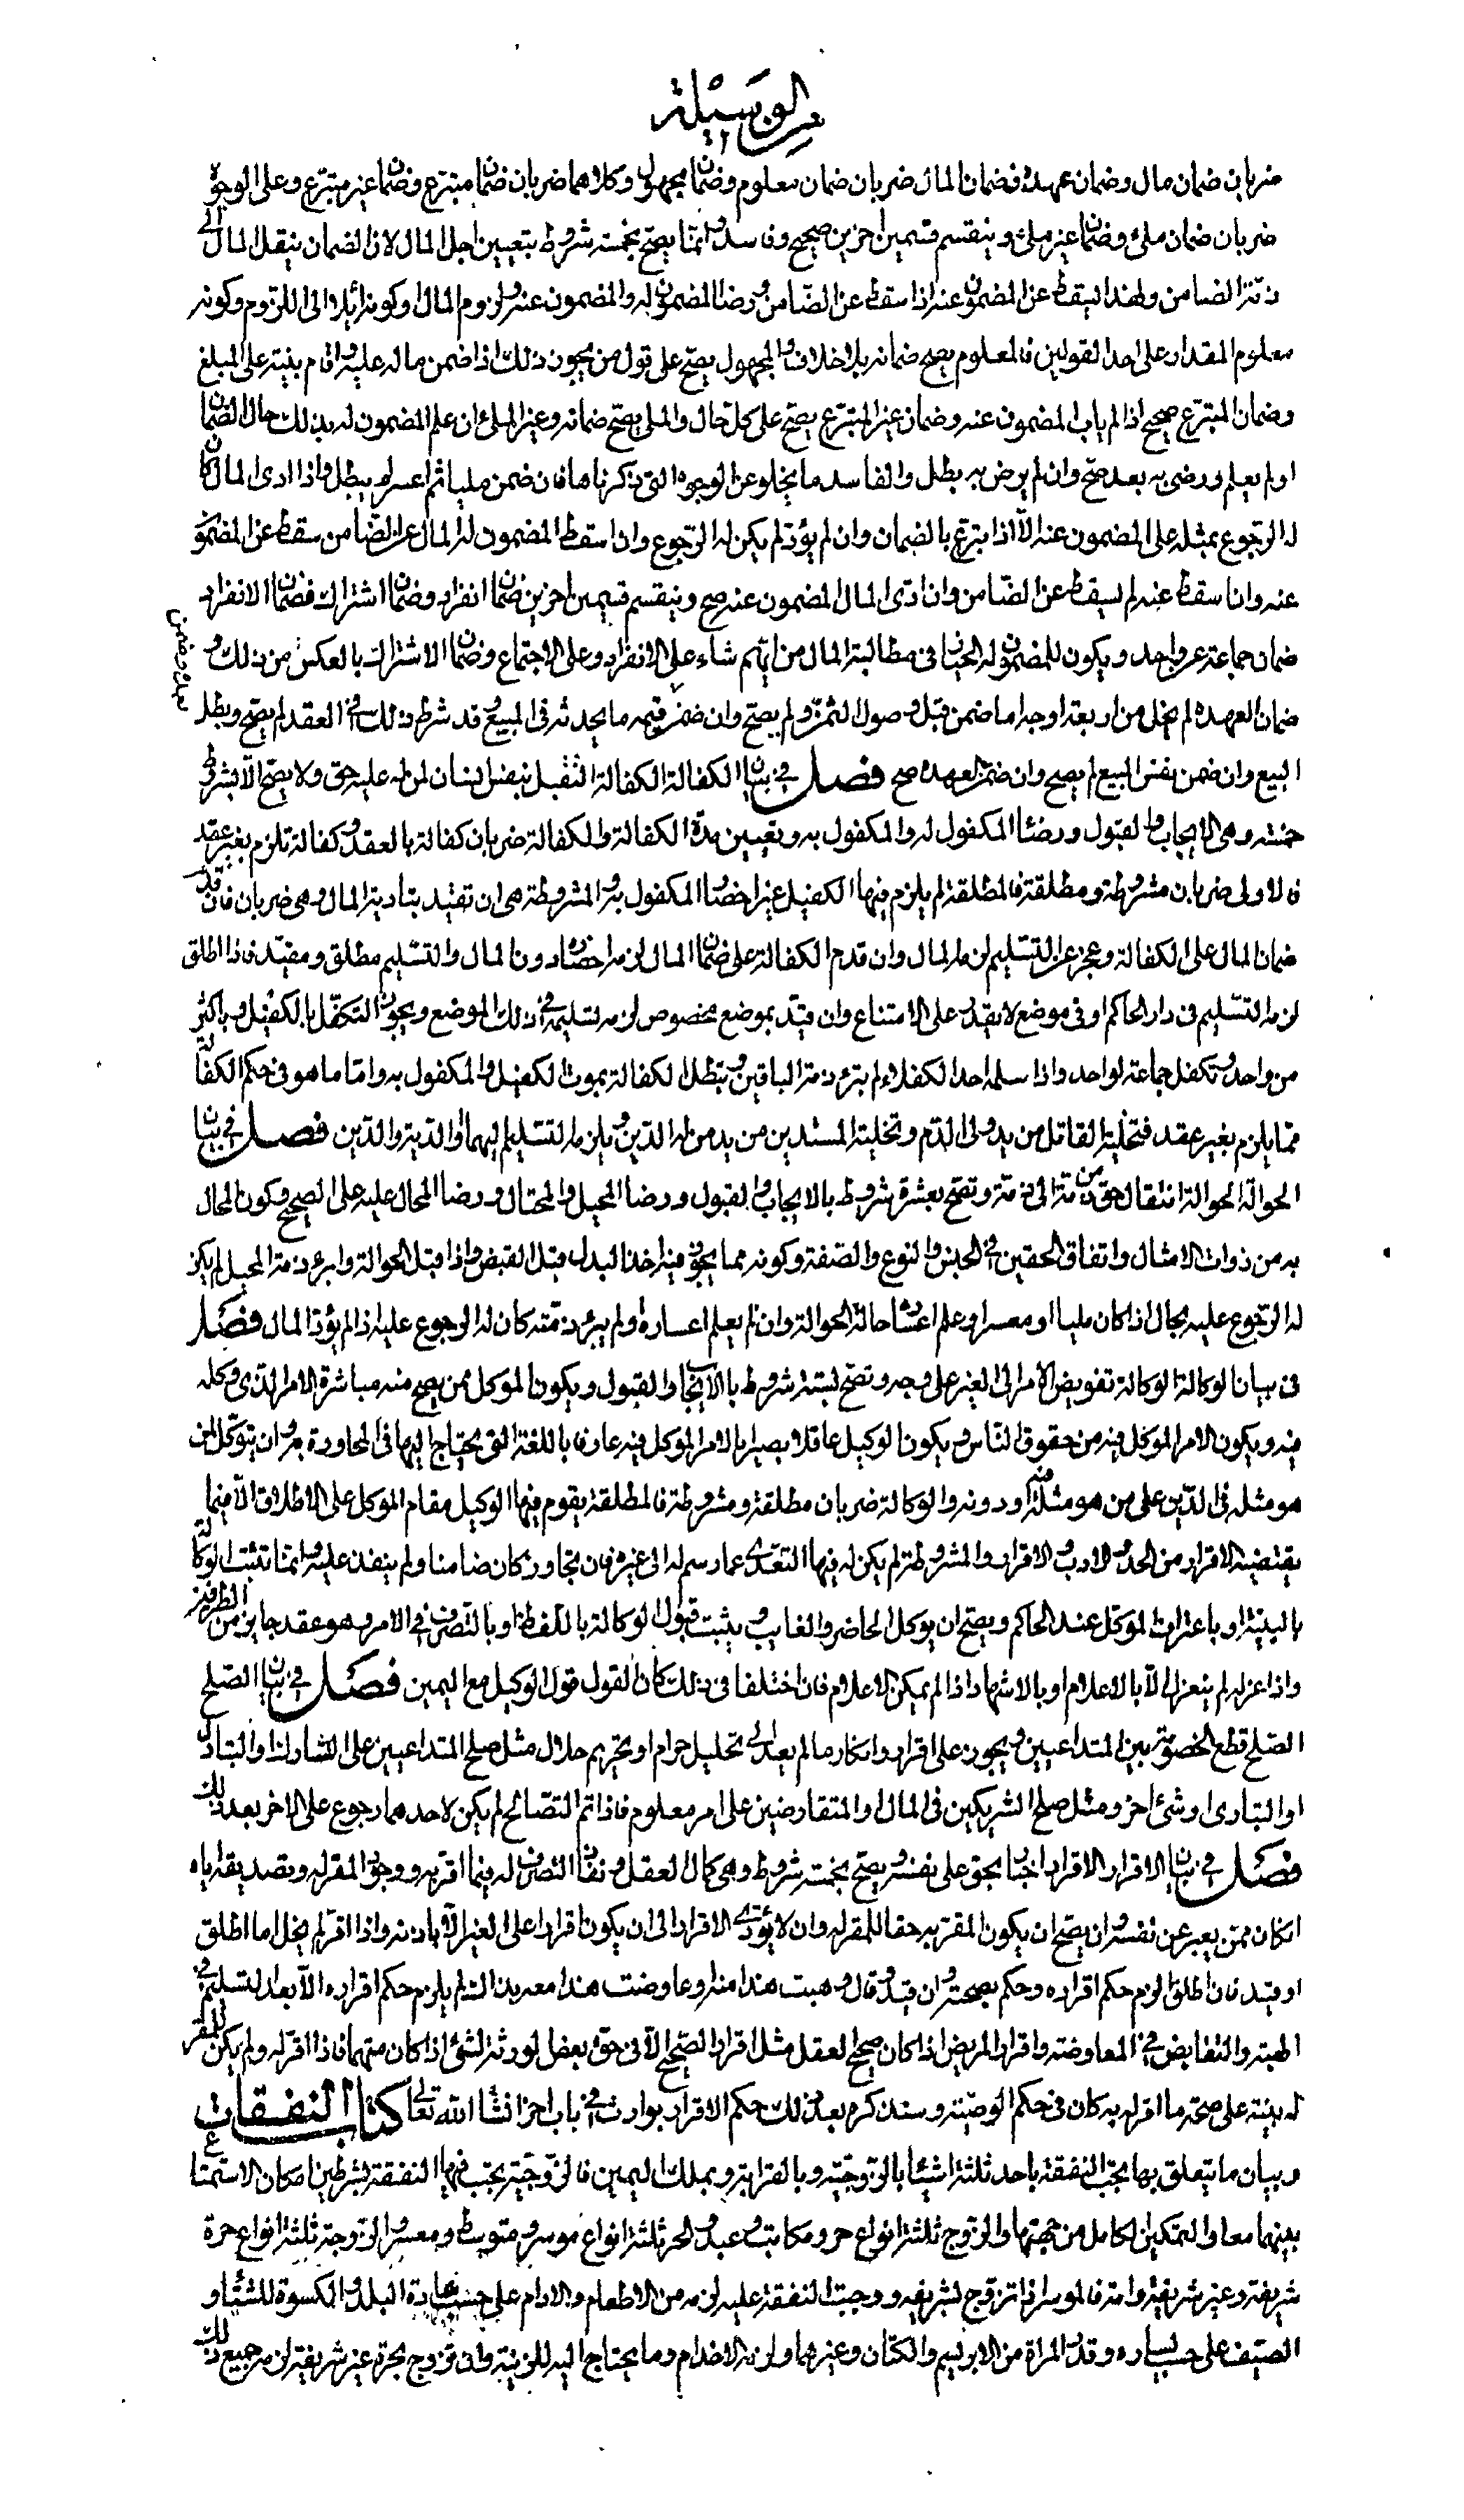 الوسيلة
ضربان ضمان مال وضمان عهدة فضمان المال ضربان ضمان معلوم وضمان مجهول وكلاهما ضربان ضمان متبرع وضمان غير متبرع وعلى الوجوه
ضربان ضمان ملئ وضمان غير ملئ وينقسم قسمين اخرين صحيح وفاسد وانما يصح بخمسة شروط بتعيين اجل المال لان الضمان ينقل المال الى
ذمة الضامن ولهذا يسقط عن المضمون عنه اذا سقط عن الضامن ورضا المضمون له والمضمون عنه ولزوم المال او كونه ائلا الى اللزوم وكونه
معلوم المقدار على احد القولين فالمعلوم يصح ضمانه بلا خلاف والمجهول يصح على قول من يجوز ذلك اذا ضمن ماله عليه واقام بينة على المبلغ
وضمان المتبرع صحيح اذا لم ياب المضمون عنه وضمان غير المتبرع يصح على كل حال والملى يصح ضمانه وغير الملئ ان علم المضمون له بذلك حال الضمان
اولم يعلم ورضى به بعد صح وان لم يرض به بطل والفاسد ما يخلو عن الوجوه التى ذكرناها فان ضمن مليا ثم اعسر لم يبطل واذا ادى المال كان
له الرجوع بمثله على المضمون عنه الا اذا تبرع بالضمان وان لم يؤد لم يكن له الرجوع واذا سقط المضمون له المال عن الضامن سقط عن المضمون
عنه واذا سقط عنه لم يسقط عن الضامن وان ادى المال المضمون عنه صح وينقسم قسمين اخرين ضمان انفراد وضمان اشتراك فضمان الانفراد
ضمان جماعة عن واحد ويكون للمضمون له الخيار فى مطالبة المال من ايهم شاء على الانفراد وعلى الاجتماع وضمان الاشتراك بالعكس من ذلك و
ضمان العهدة لم يخل من اربعة اوجه اما ضمن قبل وصول الثمن ولم يصح وان ضمن قيمه ما يحدثه فى المبيع وقد شرط ذلك فى العقد لم يصح وبطل
البيع وان ضمن نفس المبيع لم يصح وان ضمن العهدة صح فصل فى بيان الكفالة الكفالة التقبل بنفس انسان لمن له عليه حق ولا يصح الا بشروط
خمسة وهى الايجاب والقبول ورضا المكفول له والمكفول به وتعيين مدة الكفالة والكفالة ضربان كفالة بالعقد وكفالة تلزم بغير عقد
فالاولى ضربان مشروطة ومطلقة فالمطلقة لم يلزم فيها الكفيل غير احضار المكفول به والمشروطة هى ان تقيد بتادية المال وهى ضربان فان قدم
ضمان المال على الكفالة وعجز عن التسليم لزمه المال وان قدم الكفالة على ضمان المال لزمه احضاره دون المال والتسليم مطلق ومقيد فاذا اطلق
لزمه التسليم فى دار الحاكم او فى موضع لا يقدر على الامتناع وان قيد بموضع مخصوص لزمه تسليمه فى ذلك الموضع ويجوز التكفل بالكفيل وباكثر
من واحد وتكفل جماعة لواحد واذا سلمه احد الكفلاء لم تبرء ذمة الباقين وتبطل الكفالة بموت الكفيل والمكفول به واما ما هو فى حكم الكفالة
مما يلزم بغير عقد فتخلية القاتل من يد ولى الدم وتخلية المستدين من يد من له الدين ويلزمه التسليم اليهما او الدية والدين فصل فى بيان
الحوالة الحوالة انتقال حق من ذمة الى ذمة وتصح بعشرة شروط بالايجاب والقبول ورضا المحيل والمحتال ورضا المحال عليه على الصحيح وكون المحال
به من ذوات الامثال واتفاق الحقين فى الجنس والنوع والصفة وكونه مما يجوز فيه اخذ البدل قبل القبض واذا قبل الحوالة وابرء ذمة المحيل لم يكن
له الرجوع عليه بحال اذا كان مليا او معسرا وعلم اعساره حالة الحوالة وان لم يعلم اعساره ولم يبرء ذمته كان له الرجوع عليه اذا لم يؤد المال فصل
فى بيان الوكالة الوكالة تفويض الامر الى الغير على وجه وتصح بستة شروط بالايجاب والقبول ويكون الموكل ممن يصح منه مباشرة الامر الذى وكله
فيه ويكون الامر الموكل فيه من حقوق الناس ويكون الوكيل عاقلا بصيرا بالامر الموكل فيه عارفا باللغة التى يحتاج اليها فى المحاورة به وان يتوكل لمن
هو مثله فى الدين على من هو مثله فيه او دونه والوكالة ضربان مطلقة ومشروطة فالمطلقة يقوم فيها الوكيل مقام الموكل على الاطلاق الا فيما
يقتضيه الاقرار من الحد والادب والاقرار والمشروطة لم يكن له فيها التعدى عما رسم له الى غيره فان تجاوز كان ضامنا ولم ينفذ عليه وانما تثبت الوكالة
بالبينة او باعتراف الموكل عند الحاكم ويصح ان يوكل الحاضر والغايب ويثبت قبول الوكالة باللفظ او بالتصرف فى الامر وهو عقد جايز من الطرفين
واذا عزله لم ينعزل الا بالاعلام او بالاشهاد اذا لم يمكن الاعلام فان اختلفا فى ذلك كان القول قول الوكيل مع اليمين فصل فى بيان الصلح
الصلح قطع الخصومة بين المتداعيين ويجوز على اقرار وانكار ما لم يعد الى تحليل حرام او تحريم حلال مثل صلح المتداعيين على المشاركة او التبادل
او التبارى او شئ اخر ومثل صلح الشريكين فى المال او المتقارضين على امر معلوم فاذا تم التصالح لم يكن لاحدهما رجوع على الاخر بعد ذلك
فصل فى بيان الاقرار الاقرار اخبار بحق على نفسه ويصح بخمسة شروط وهى كمال العقل ونفاذ التصرف له فيما اقر به ووجود المقر له وتصديقه اياه
ان كان ممن يعبر عن نفسه وان يصح ان يكون المقر به حقا للمقر له وان لا يؤدى الاقرار الى ان يكون اقرارا على الغير الا باذنه واذا اقر لم يخل اما اطلق
او قيد فان اطلق لزم حكم اقراره وحكم بصحته وان قيد وقال وهبت هذا منه او عاوضت هذا معه بذلك لم يلزم حكم اقراره الا بعد التسليم فى
الهبة والتقابض فى المعاوضة واقرار المريض اذا كان صحيح العقل مثل اقرار الصحيح الا فى حق بعض الورثة لشئ اذا كان متهما فاذا اقر له ولم يكن للمقر
له بينة على صحة ما اقر له به كان فى حكم الوصية وسنذكر بعد ذلك حكم الاقرار بوارث فى باب اخر انشا الله تعالى كتاب النفقات
وبيان ما يتعلق بها يجب النفقة باحد ثلثة اشيا بالزوجية وبالقرابة وبملك اليمين فالزوجية يجب فيها النفقة بشرطين امكان الاستمتاع
بينهما معا والتمكين الكامل من جهتها والزوج ثلثة انواع حر ومكاتب وعبد والحر ثلثة انواع موسر ومتوسط ومعسر والزوجة ثلثة انواع حرة
شريفة وغير شريفة وامة فالموسر اذا تزوج لشريفة ووجبت النفقة عليه لزمه من الاطعام والادام على حسب عادة البلد والكسوة للشتاء و
الصيف على حسب يساره وقدر المراة من الابريسم والكتان وغيرهما ولزمه الاخدام وما يحتاج اليه للزينة وان تزوج بحرة غير شريفة لزمه جميع ذلك